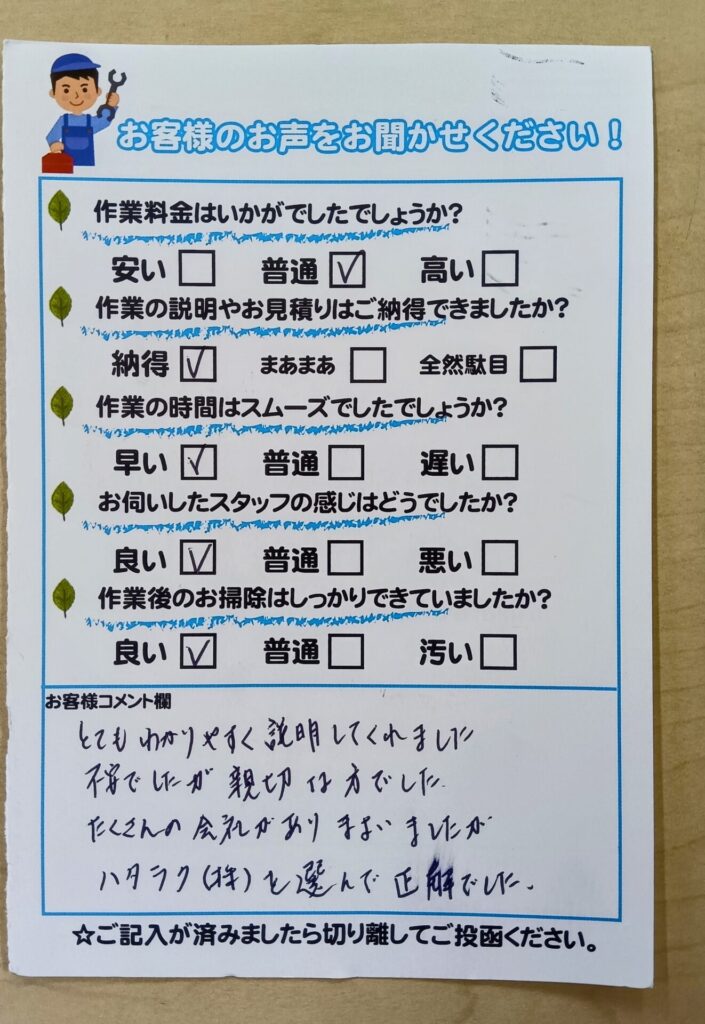 お客様のお声をお聞かせください！
作業料金はいかがでしたでしょうか?
安い□ 普通☑ 高い□
作業の説明やお見積りはご納得できましたか?
納得☑ まあまあ□ 全然駄目□
作業の時間はスムーズでしたでしょうか?
早い☑ 普通□ 遅い□
お伺いしたスタッフの感じはどうでしたか?
良い☑ 普通□ 悪い□
作業後のお掃除はしっかりできていましたか?
良い☑ 普通□ 汚い□
お客様コメント欄
とてもわかりやすく説明してくれました
不安でしたが親切な方でした.
たくさんの会社があり ましたが
ハタラク(株)を選んで正解でした.
☆ご記入が済みましたら切り離してご投函ください。